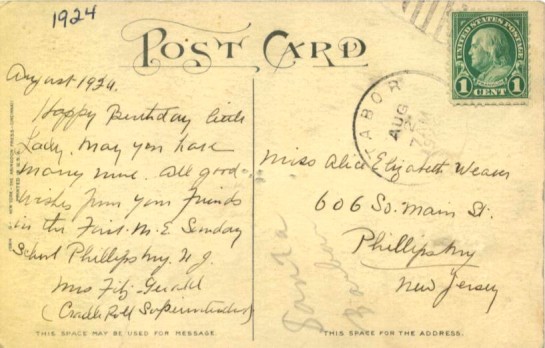 1924
POST CARD
August 1924.
Happy Birthday little
Lady. May you have
many more. All good
wishes from your friends
in the First M. E. Sunday
School Phillipsburg, N. J.
Mrs Fitz-Gerald
(Cradle Roll Superintendent)
THIS SPACE MAY BE USED FOR MESSAGE.
UNITED STATES POSTAGE
1 CENT 1
TABOR
AUG
2
Miss Alice Elizabeth Weaver
606 So. Main St.
Phillipsburg
New Jersey
THIS SPACE FOR THE ADDRESS.